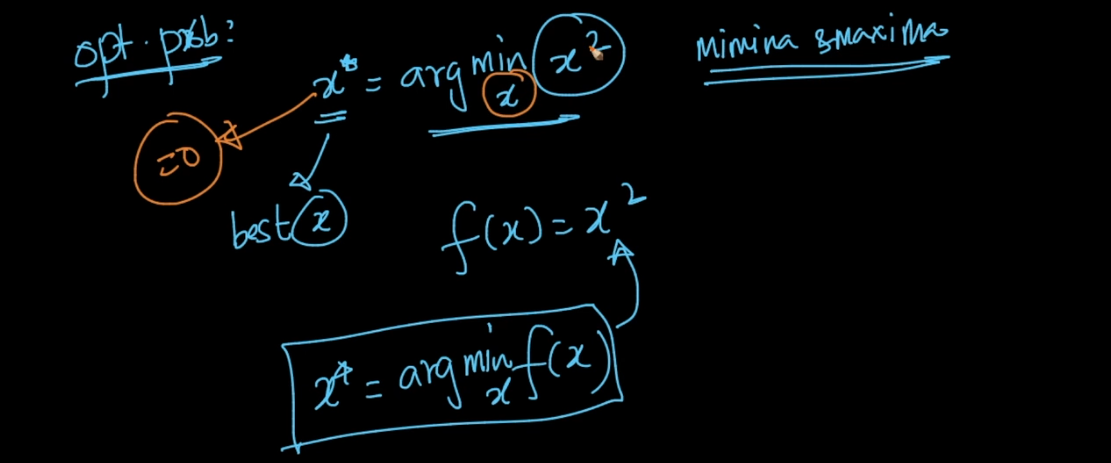 opt. prob:
x* = arg min x x²
minina & maxima
=0
best x
f(x) = x²
x* = arg min x f(x)